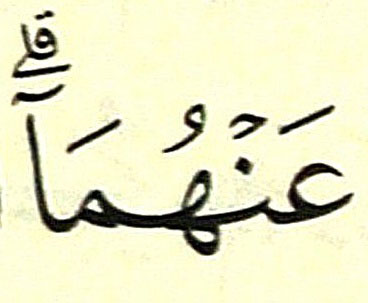 عَنْهُمَآ ۗ